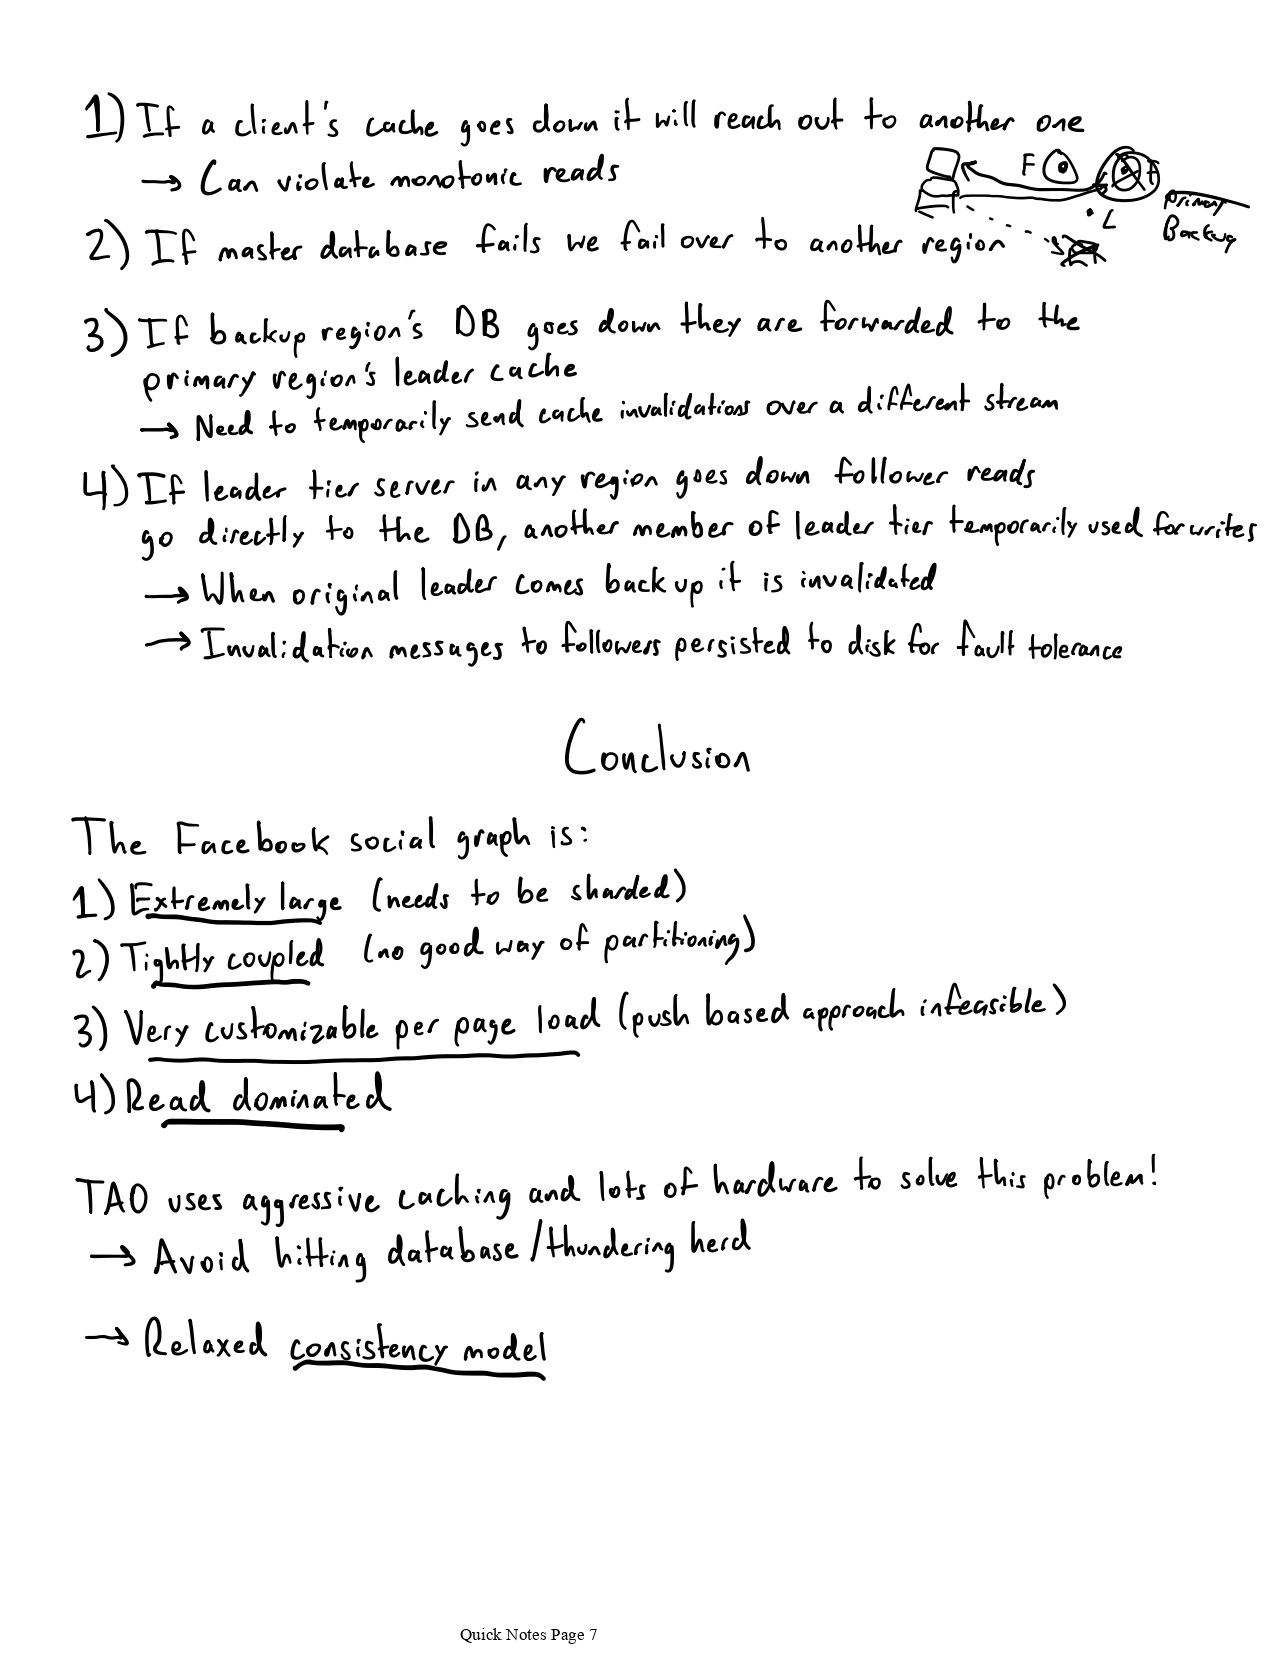 1) If a client's cache goes down it will reach out to another one
→ Can violate monotonic reads
F F
L
Primary
Backup
2) If master database fails we fail over to another region
3) If backup region's DB goes down they are forwarded to the
primary region's leader cache
→ Need to temporarily send cache invalidations over a different stream
4) If leader tier server in any region goes down follower reads
go directly to the DB, another member of leader tier temporarily used for writes
→ When original leader comes back up it is invalidated
→ Invalidation messages to followers persisted to disk for fault tolerance
Conclusion
The Facebook social graph is:
1) Extremely large (needs to be sharded)
2) Tightly coupled (no good way of partitioning)
3) Very customizable per page load (push based approach infeasible)
4) Read dominated
TAO uses aggressive caching and lots of hardware to solve this problem!
→ Avoid hitting database/thundering herd
→ Relaxed consistency model
Quick Notes Page 7